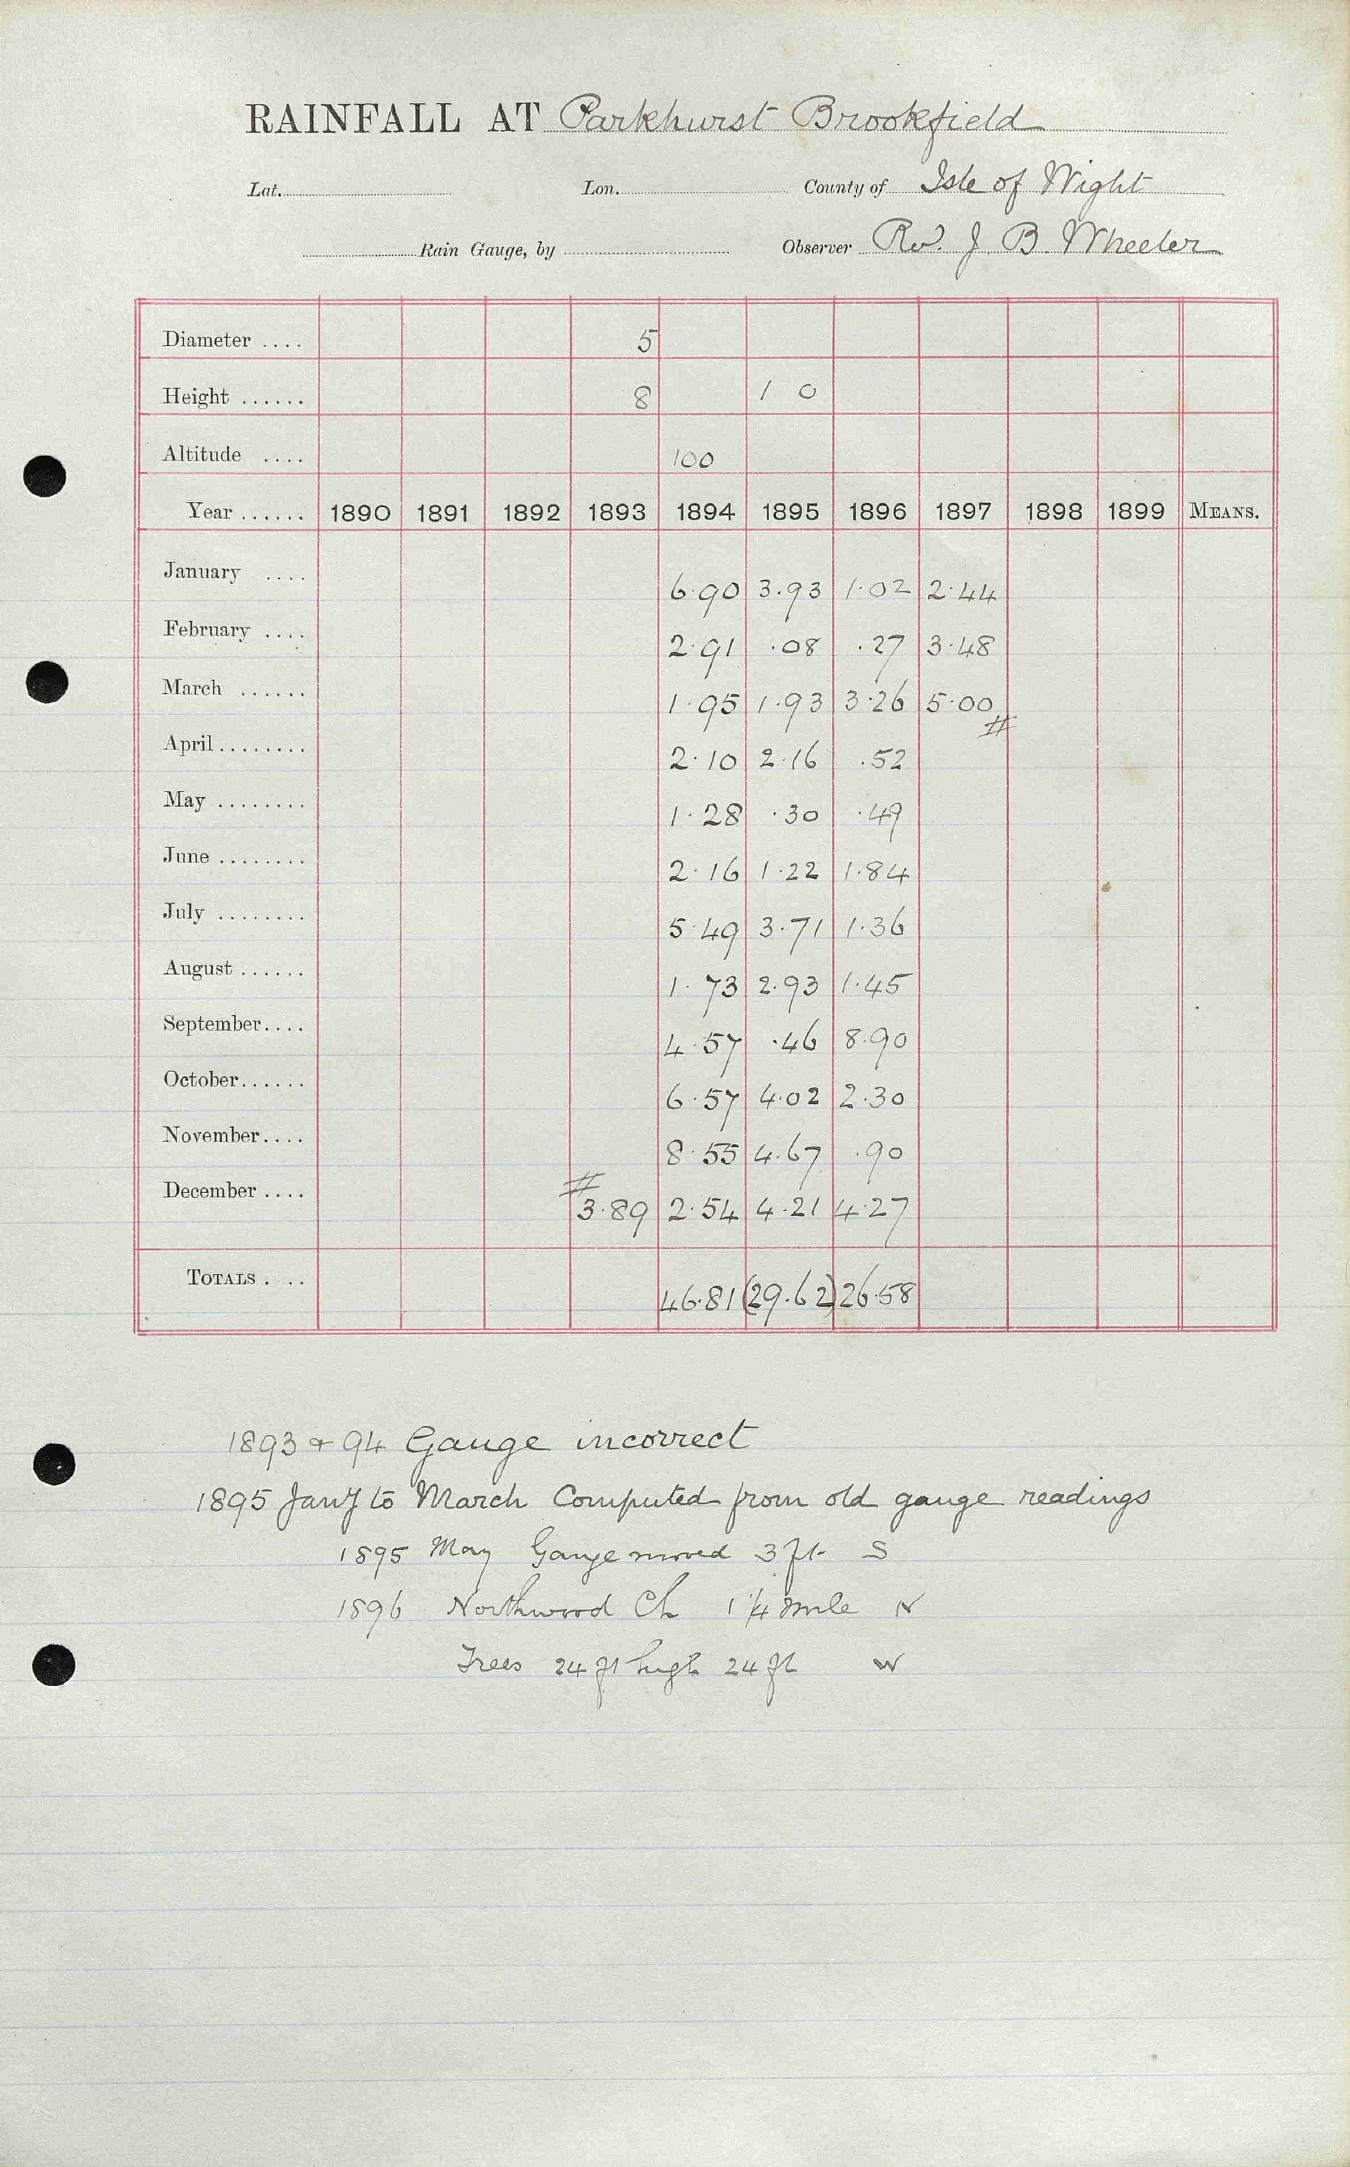 RAINFALL AT Parkhurst Brookfield
Lat. Lon. County of Isle of Wight
Rain Gauge, by Observer Rev. J. B. Wheeler
Diameter .... 5
Height ...... 8 1 0
Altitude .... 100
Year ...... 1890 1891 1892 1893 1894 1895 1896 1897 1898 1899 MEANS.
January .... 6.90 3.93 1.02 2.44
February .... 2.91 .08 .27 3.48
March ...... 1.95 1.93 3.26 5.00 #
April ........ 2.10 2.16 .52
May ........ 1.28 .30 .49
June ........ 2.16 1.22 1.84
July ........ 5.49 3.71 1.36
August ...... 1.73 2.93 1.45
September .... 4.57 .46 8.90
October ...... 6.57 4.02 2.30
November .... 8.55 4.67 .90
December .... # 3.89 2.54 4.21 4.27
TOTALS . .. 46.81 (29.62) 26.58
1893 & 94 Gauge incorrect
1895 Jany to March Computed from old gauge readings
1895 May Gauge moved 3 ft S
1896 Northwood Ch 1 1/4 mile N
Trees 24 ft high 24 ft W